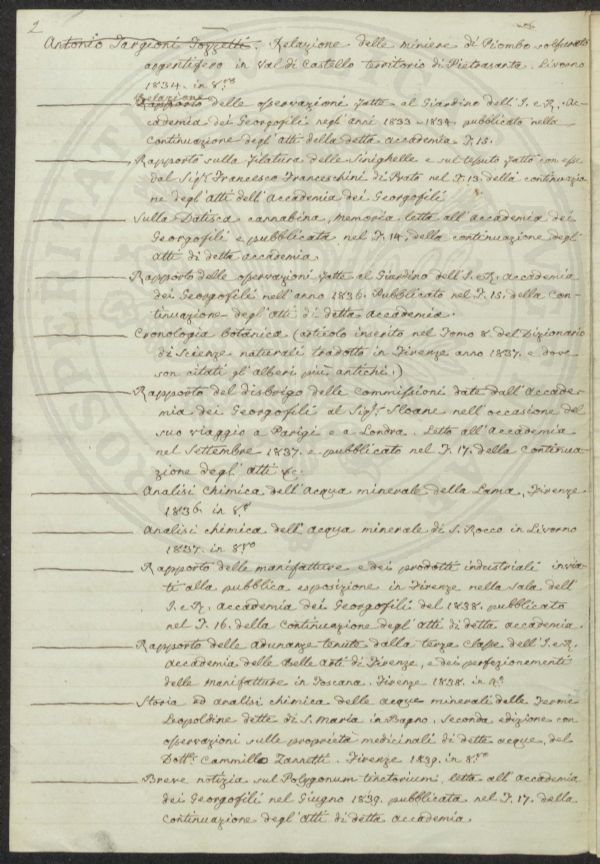 2
Antonio Targioni Tozzetti. Relazione delle miniere di Piombo solfurato
argentifero in Val di Castello territorio di Pietrasanta. Livorno
1834. in 8.vo
Relazione
Rapporto delle osservazioni fatte al Giardino dell'I. e R. Ac-
cademia dei Georgofili negl'anni 1833 - 1834. pubblicato nella
Continuazione degl'Atti della detta accademia T. 15.
Rapporto sulla Filatura delle Sinighelle e sul tessuto fatto con esse
dal Sigr. Francesco Franceschini di Prato nel T. 13. della continuazio
ne degl'Atti dell'Accademia dei Georgofili
Sulla Datisca cannabina, memoria letta all'accademia dei
Georgofili e pubblicata nel T. 14. della continuazione degl'
Atti di detta accademia.
Rapporto delle osservazioni fatte al Giardino dell'I. e R. accademia
dei Georgofili nell'anno 1836. Pubblicato nel T. 15. della Con-
tinuazione degl'Atti di detta Accademia.
Cronologia botanica (articolo inserito nel Tomo 8. del Dizionario
di Scienze naturali tradotto in Firenze anno 1837. e dove
son citati gl'alberi più antichi.)
Rapporto del disbrigo delle Commissioni date dall'Accade-
mia dei Georgofili al Sigr. Sloane nell'occasione del
suo viaggio a Parigi e a Londra. Letto all'Accademia
nel Settembre 1837. e pubblicato nel T. 17. della Continua-
zione degl'Atti &c.
Analisi Chimica dell'Acqua minerale della Lama, Firenze
1836. in 8.o
Analisi chimica dell'acqua minerale di S. Rocco in Livorno
1837. in 8.vo
Rapporto delle manifatture e dei prodotti industriali invia-
ti alla pubblica esposizione in Firenze nella sala dell'
I. e R. accademia dei Georgofili del 1838. pubblicato
nel T. 16. della Continuazione degl'Atti di detta accademia.
Rapporto delle adunanze tenute dalla terza classe dell'I. e R.
accademia delle Belle arti di Firenze, e dei perfezionamenti
delle manifatture in Toscana. Firenze 1838. in 4.o
Storia ed analisi chimica delle acque minerali delle Terme
Leopoldine dette di S. Maria in Bagno. Seconda edizione con
osservazioni sulle proprietà medicinali di dette acque, del
Dottr. Cammillo Zannetti. Firenze 1839. in 8.vo
Breve notizia sul Polygonum tinctorium, letta all'accademia
dei Georgofili nel Giugno 1839. pubblicata nel T. 17. della
Continuazione degl'Atti di detta accademia.